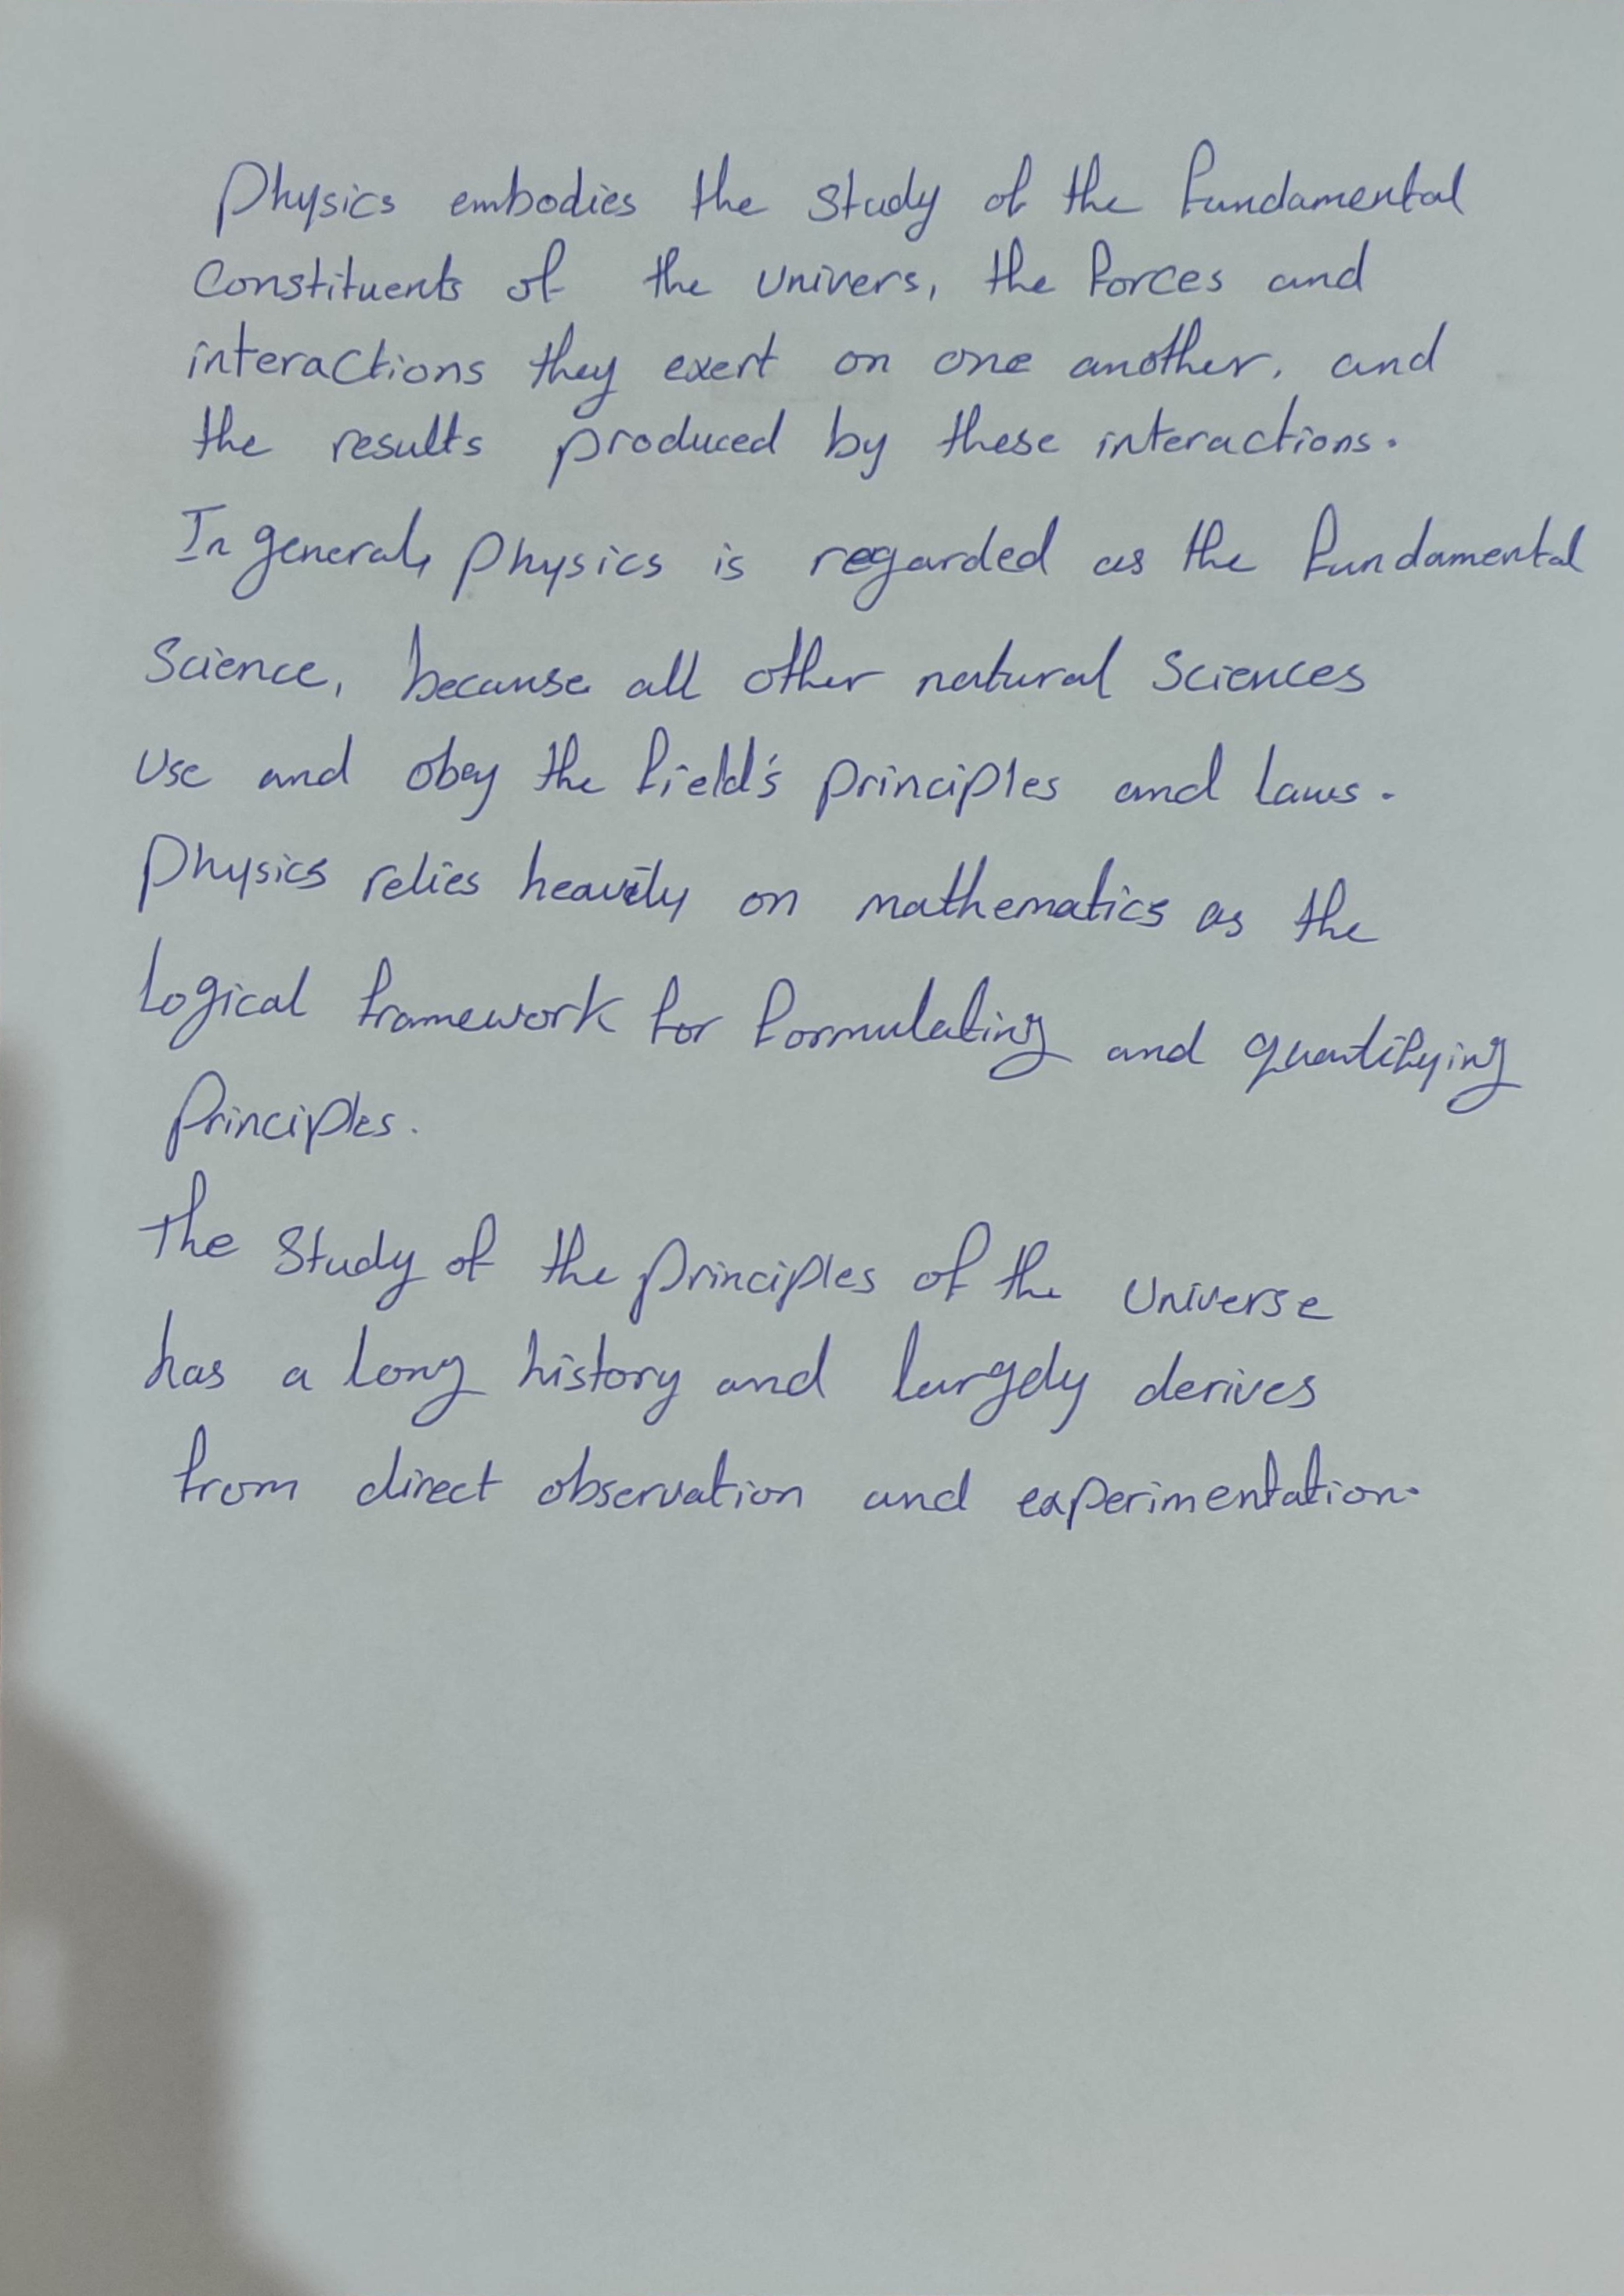 Physics embodies the study of the fundamental
Constituents of the Univers, the forces and
interactions they exert on one another, and
the results produced by these interactions.
In general, physics is regarded as the fundamental
Science, because all other natural Sciences
Use and obey the field's principles and laws.
Physics relies heavily on mathematics as the
Logical framework for formulating and quantifying
Principles.
The Study of the principles of the Universe
has a long history and largely derives
from direct observation and experimentation.